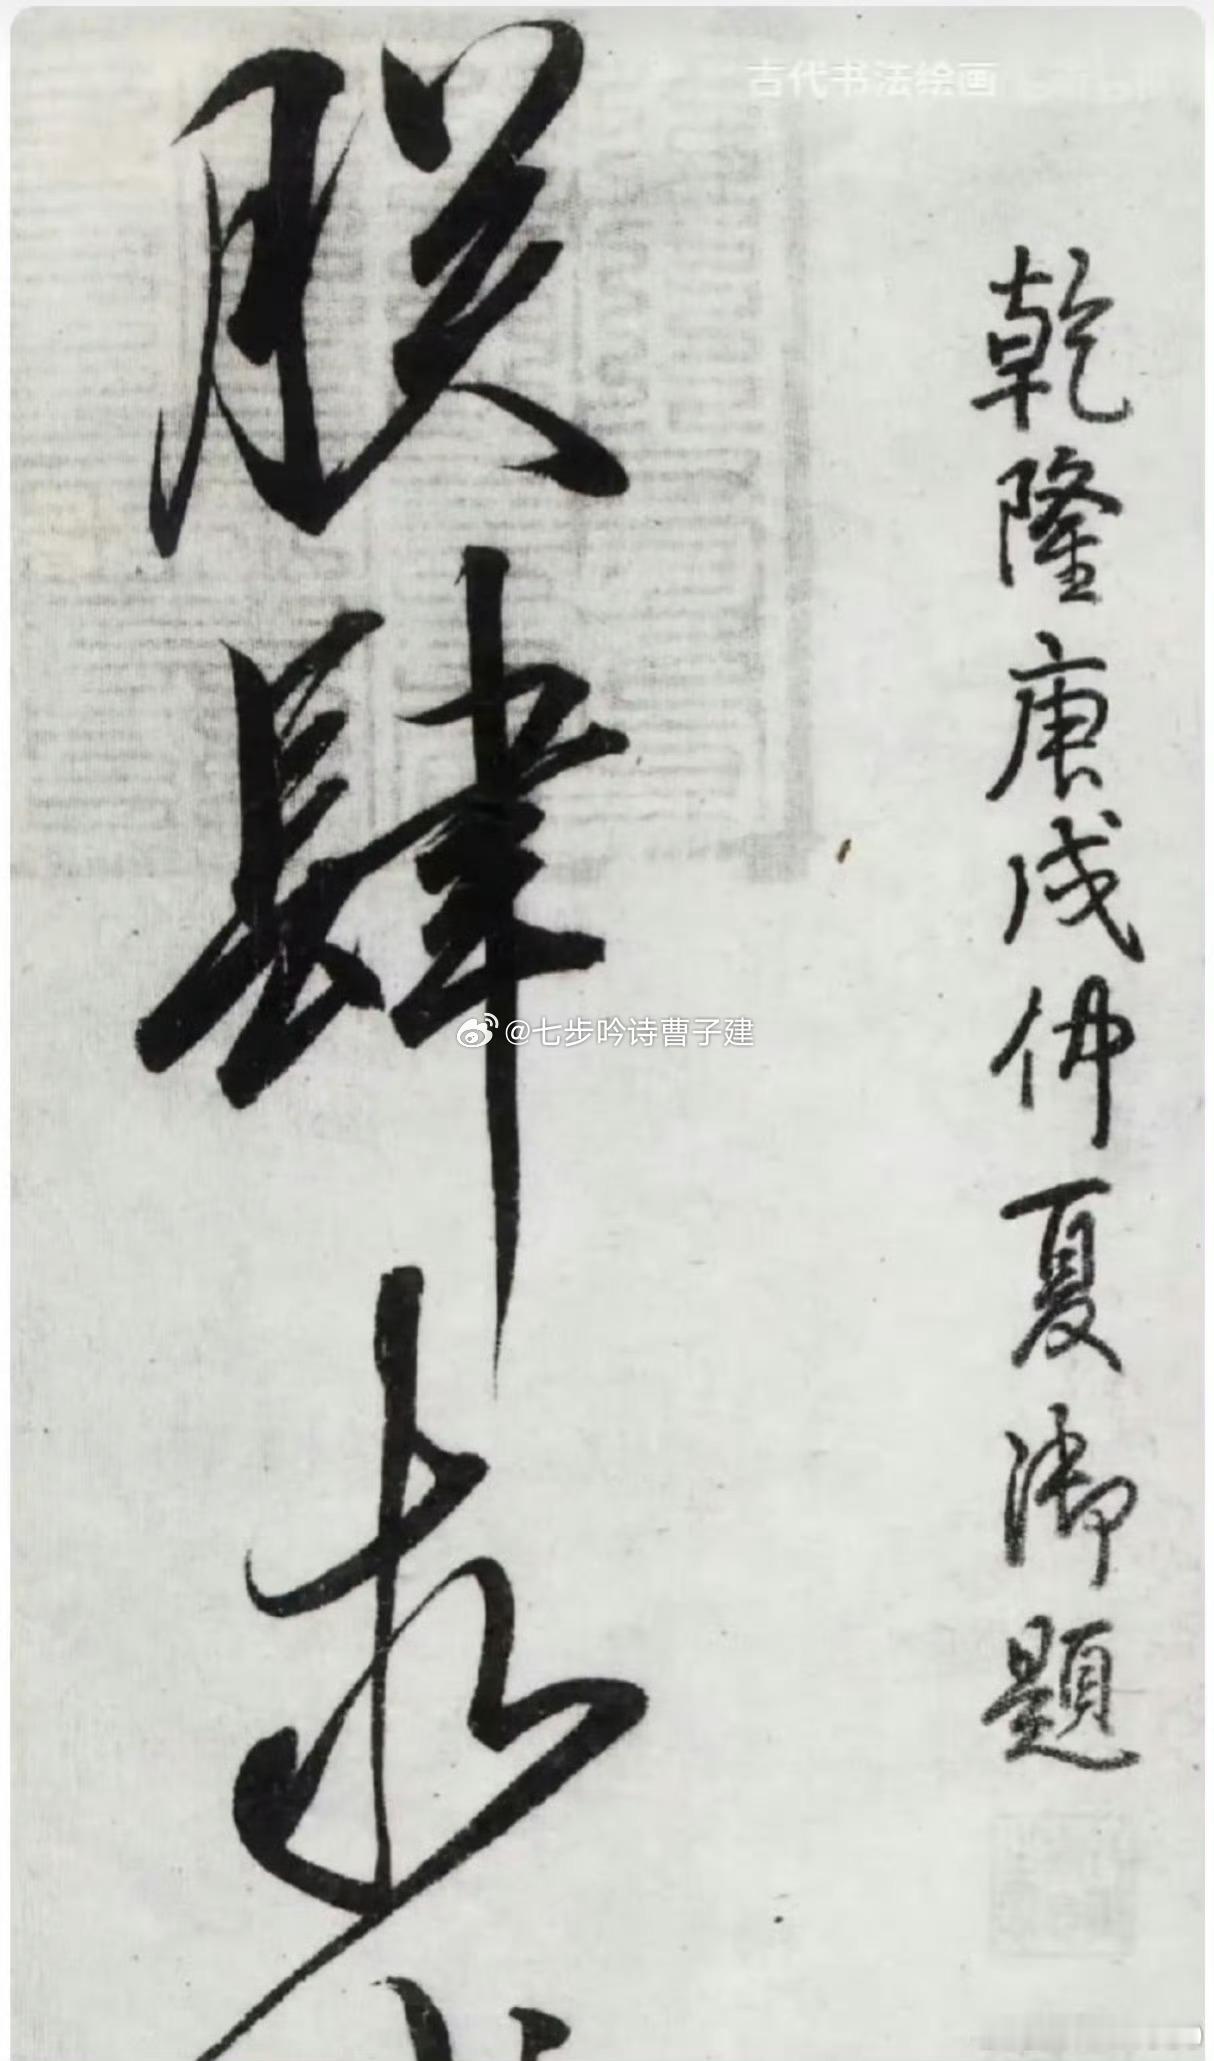 古代书法绘画
乾隆庚戌仲夏御題
朕肆
@七步吟诗曹子建